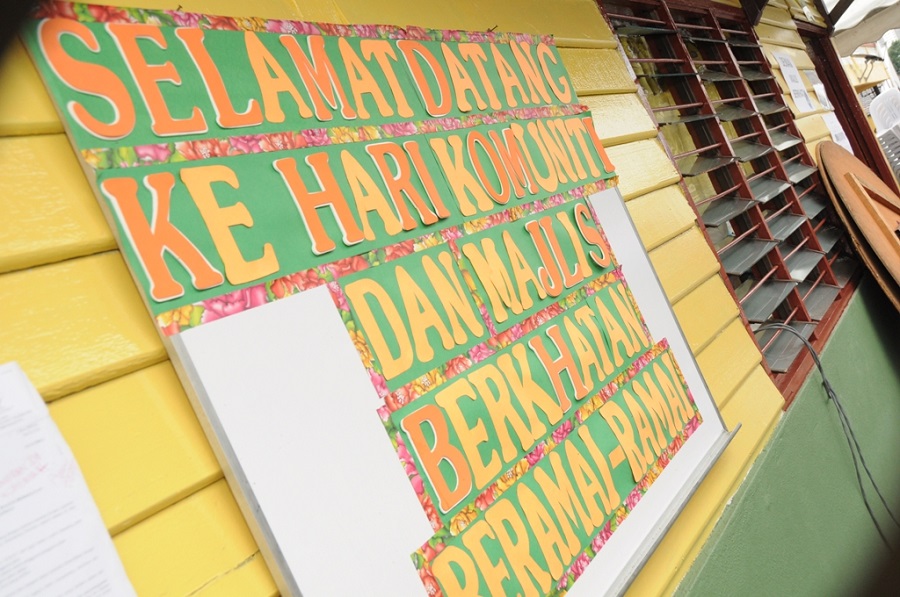 SELAMAT DATANG
KE HARI KOMUNITI
DAN MAJLIS
BERKHATAN
BERAMAI-RAMAI